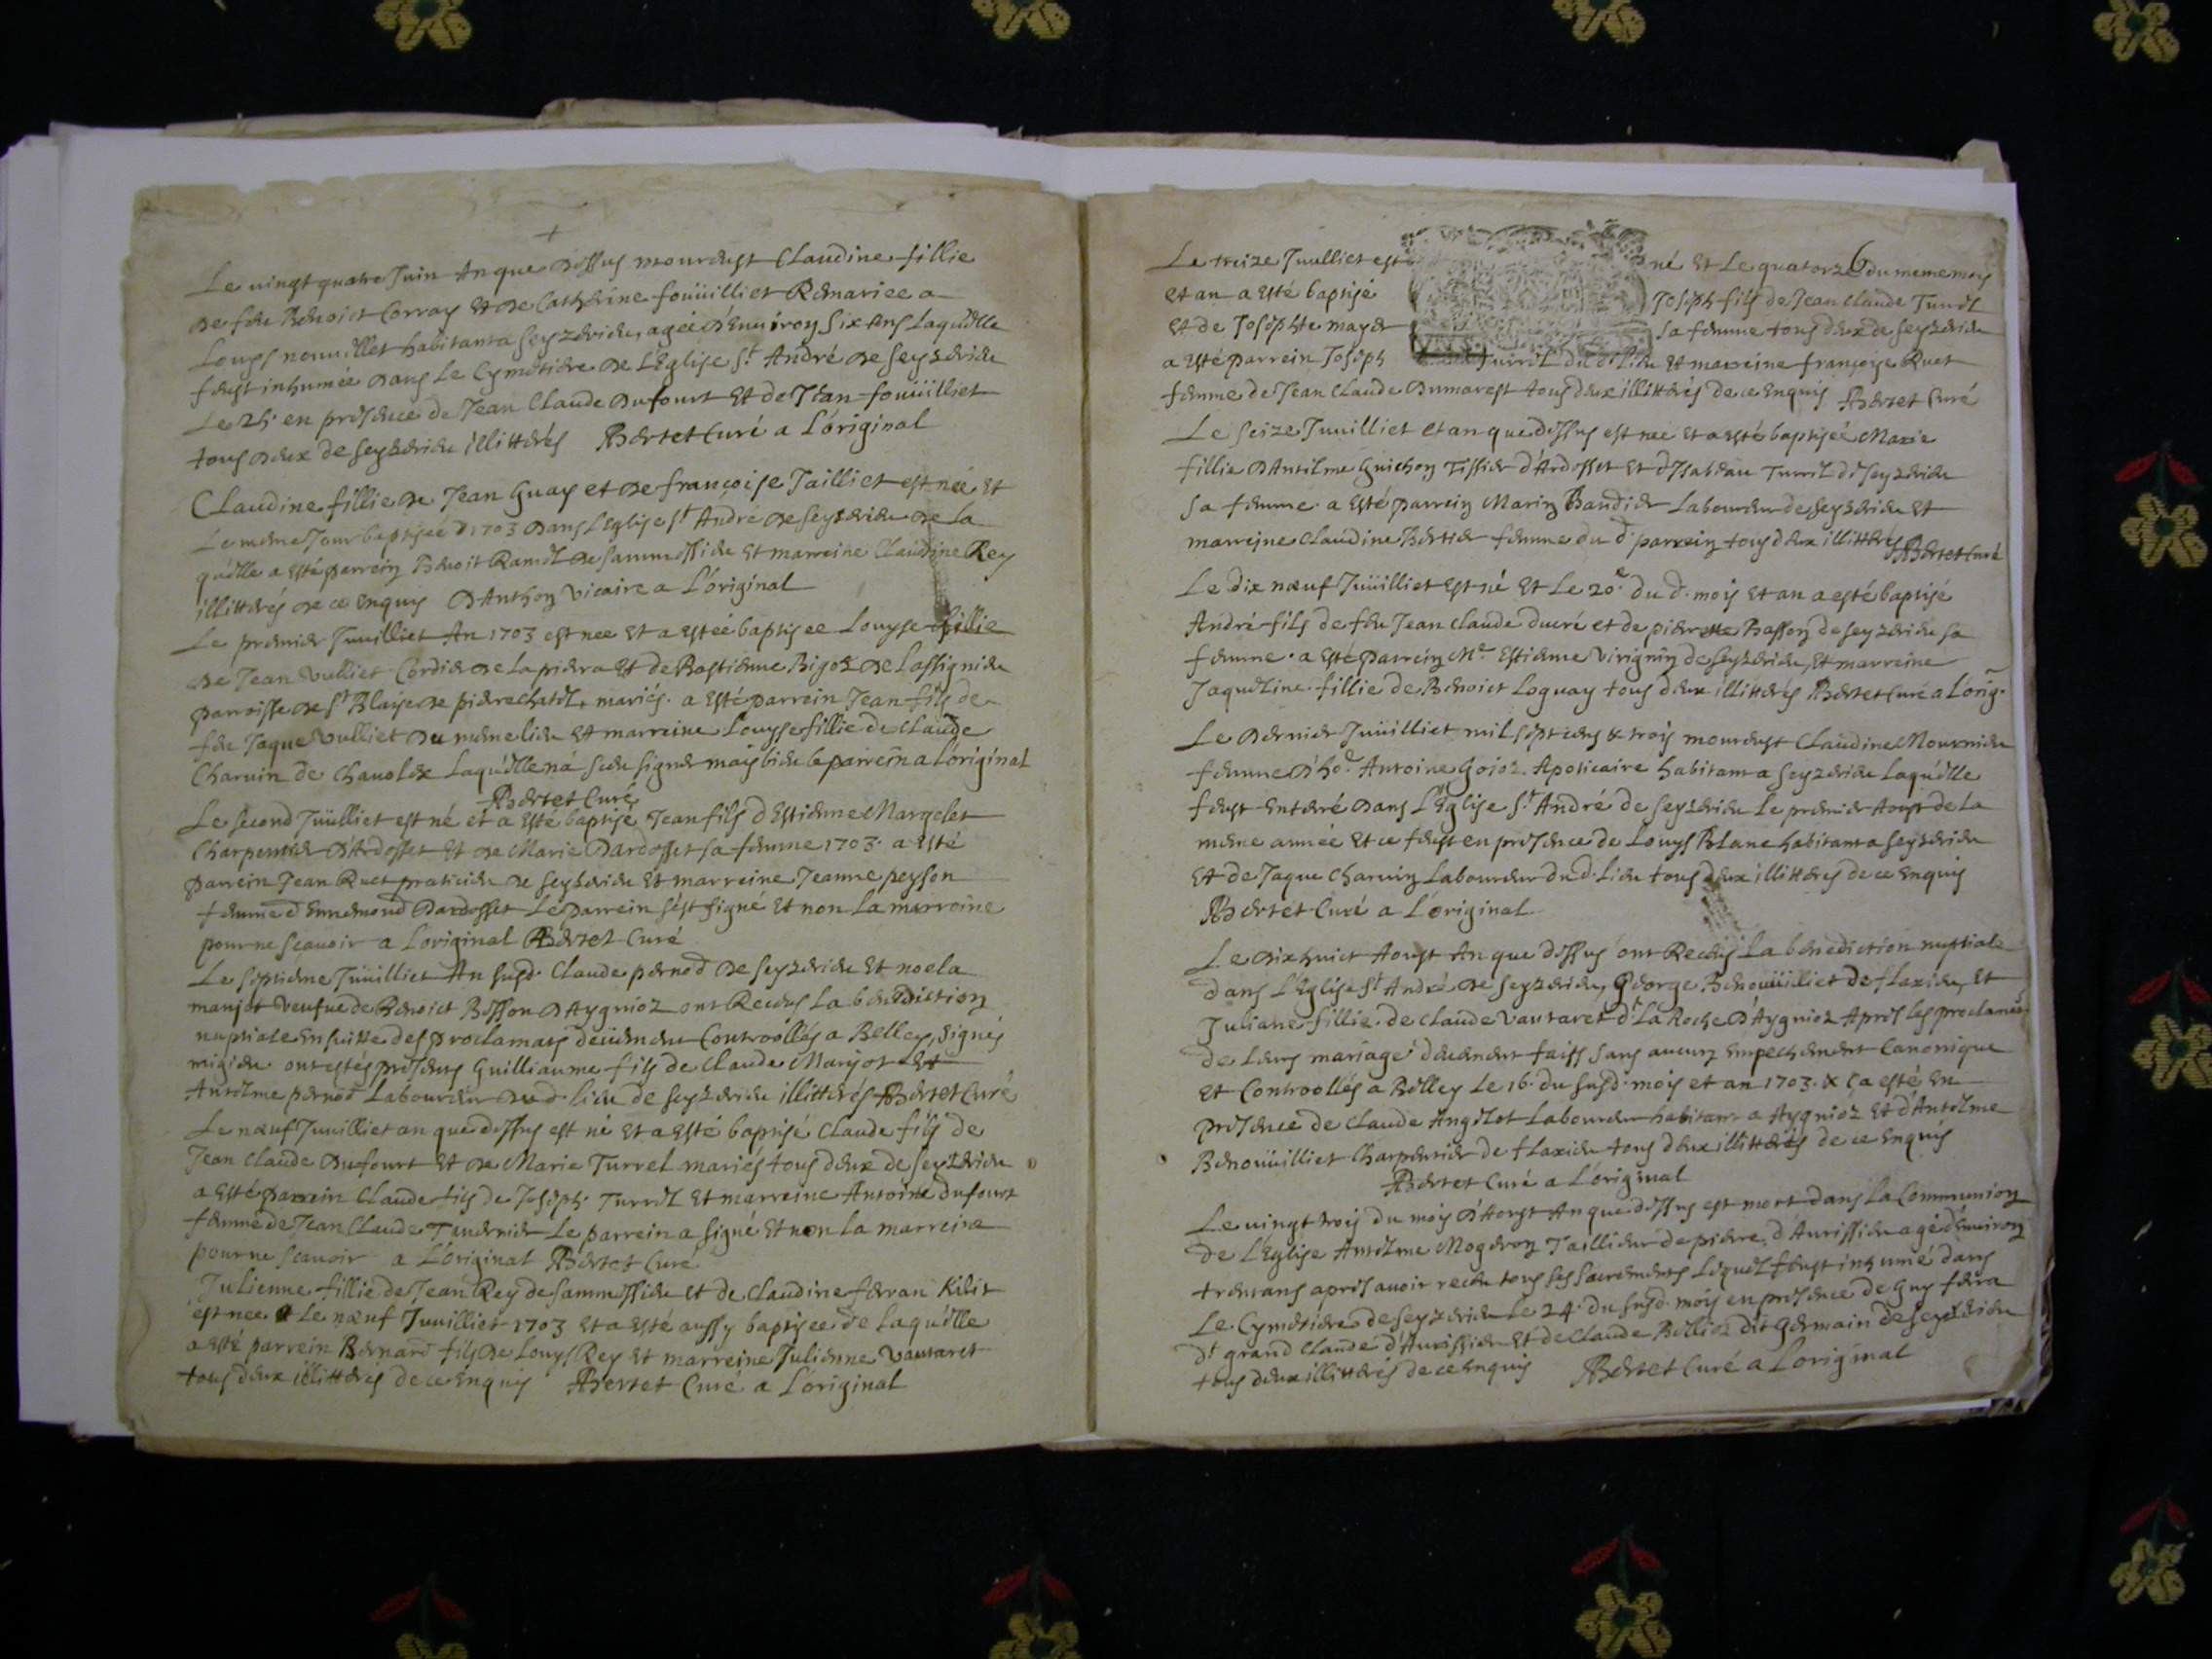 Le vingt quatre Juin An que dessus mourust Claudine fillie
de feu Benoict Corray et de Catherine foüilliet Remariee a
Louys nouvillet habitant a seyzerieu, agée d'environ six ans Laquelle
feust inhumée dans Le Cymetiere de L'Eglise St André de seyzerieu
Le 25 en presence de Jean Claude Dufourt et de Jean foüilliet
tous deux de seyzerieu illitterés Bertet Curé a L'original
Claudine fillie de Jean Guay et de françoise Tailliet est née et
Le meme Jour baptisée 1703 dans L'Eglise St André de seyzerieu de La
quelle a esté parrein Benoit Ramel de sammessieu et marreine Claudine Rey
illitterés de ce enquis D'Anthon vicaire a L'original
Le premier Juilliet An 1703 est nee et a estée baptisee Louyse fillie
de Jean Vulliet Cordier de La piera et de Bastienne Bigoz de Lassignieu
parroisse de St Blaise de pierrechatel, mariés. a esté parrein Jean fils de
feu Jaque Vulliet du meme lieu et marreine Louyse fillie de Claude
Charvin de Chavolex Laquelle na sceu signer mais bien le parrein a L'original
Bertet Curé
Le second Juilliet est né et a esté baptisé Jean fils d'Estienne Margelet
Charpentier d'Ardosset et de Marie Dardosset sa femme 1703. a esté
parrein Jean Ruet praticien de seyzerieu et marreine Jeanne peyson
femme d'Ennemond Dardosset Le parrein s'est signé et non La marreine
pour ne sçavoir a L'original Bertet Curé
Le septieme Juilliet An susd. Claude pernod de seyzerieu et noela
manjot veufue de Benoict Bosson D'Aygnioz ont Receus La benediction
nuptiale ensuitte des proclamats deüement Controollés a Belley, signés
migieu ont estés presens Guilliaume fils de Claude Marjot et
Antelme pernod Laboureur dud. lieu de seyzerieu illitterés Bertet Curé
Le nœuf Juilliet an que dessus est né et a esté baptisé Claude fils de
Jean Claude Dufourt et de Marie Turrel mariés tous deux de seyzerieu
a esté parrein Claude fils de Joseph Turrel et marreine Antoine Dufourt
femme de Jean Claude Tavernier Le parrein a signé et non La marreine
pour ne scavoir a L'original Bertet Curé
Julienne fillie de Jean Rey de sammessieu et de Claudine ferran Kilit
est nee Le nœuf Juilliet 1703 et a esté aussy baptisee de laquelle
a esté parrein Bernard fils de Louys Rey et marreine Julienne Vautaret
tous deux illitterés de ce enquis Bertet Curé a L'original
6
Le treize Juilliet est né et Le quatorze du meme moys
et an a esté baptisé Joseph fils de Jean Claude Turrel
et de Josephte mayer sa femme tous deux de seyzerieu
a esté parrein Joseph Turrel du d. Lieu et marreine françoise Ruet
femme de Jean Claude Dumarest tous deux illitterés de ce enquis Bertet Curé
Le seize Juilliet et an que dessus est nee et a esté baptisée Marie
fillie d'Antelme Guichon Tissier d'Ardosset et d'Isabeau Turrel de seyzerieu
sa femme. a esté parrein Marin Baudier Laboureur de seyzerieu et
marreine Claudine Bertier femme du d. parrein tous deux illitterés Bertet Curé
Le dix nœuf Juilliet est né et Le 20e du d. mois et an a esté baptisé
André fils de feu Jean Claude ducré et de pierrette Basson de seyzerieu sa
femme. a esté parrein Me Estienne Virignin de seyzerieu, et marreine
Jaqueline fillie de Benoict Loguay tous deux illitterés Bertet Curé a L'orig.
Le dernier Juilliet mil sept cens & trois mourust Claudine Mournieu
femme d'ho. Antoine Gojoz Apoticaire habitant a seyzerieu Laquelle
feust enterré dans L'Eglise St André de seyzerieu Le premier Aoust de La
meme année et ce feust en presence de Louys Blanc habitant a seyzerieu
et de Jaque Charvin Laboureur du d. lieu tous deux illitterés de ce enquis
Bertet Curé a L'original
Le dixhuict Aoust An que dessus ont Receus La benediction nuptiale
dans L'Eglise St André de seyzerieu, George Benoüilliet de flaxieu, et
Juliane fillie de Claude Vautaret dt La Roche d'Aygnioz Apres les proclamats
de Leurs mariage deüement faits sans aucun empechement Canonique
et Controollés a Belley Le 16. du susd. mois et an 1703. & ça esté en
presence de Claude Angelot Laboureur habitant a Aygnioz et d'Antelme
Benoüilliet Charpentier de flaxieu tous deux illitterés de ce enquis
Bertet Curé a L'original
Le vingt trois du mois d'Aoust An que dessus est mort dans La Communion
de L'Eglise Antelme Mogeron Taillieur de pierre, d'Avrissieu agé d'environ
trente ans apres avoir receu tous ses sacrements Lequel feust inhumé dans
Le Cymetiere de seyzerieu Le 24. du susd. mois en presence de Guy ferra
dt grand Claude d'Avrissieu et de Claude Billioz dit Germain de seyzerieu
tous deux illitterés de ce enquis Bertet Curé a L'original